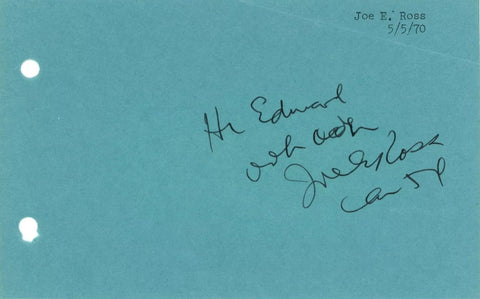 Joe E. Ross
5/5/70
Hi Edward
ooh ooh
Joe E Ross
Car 54